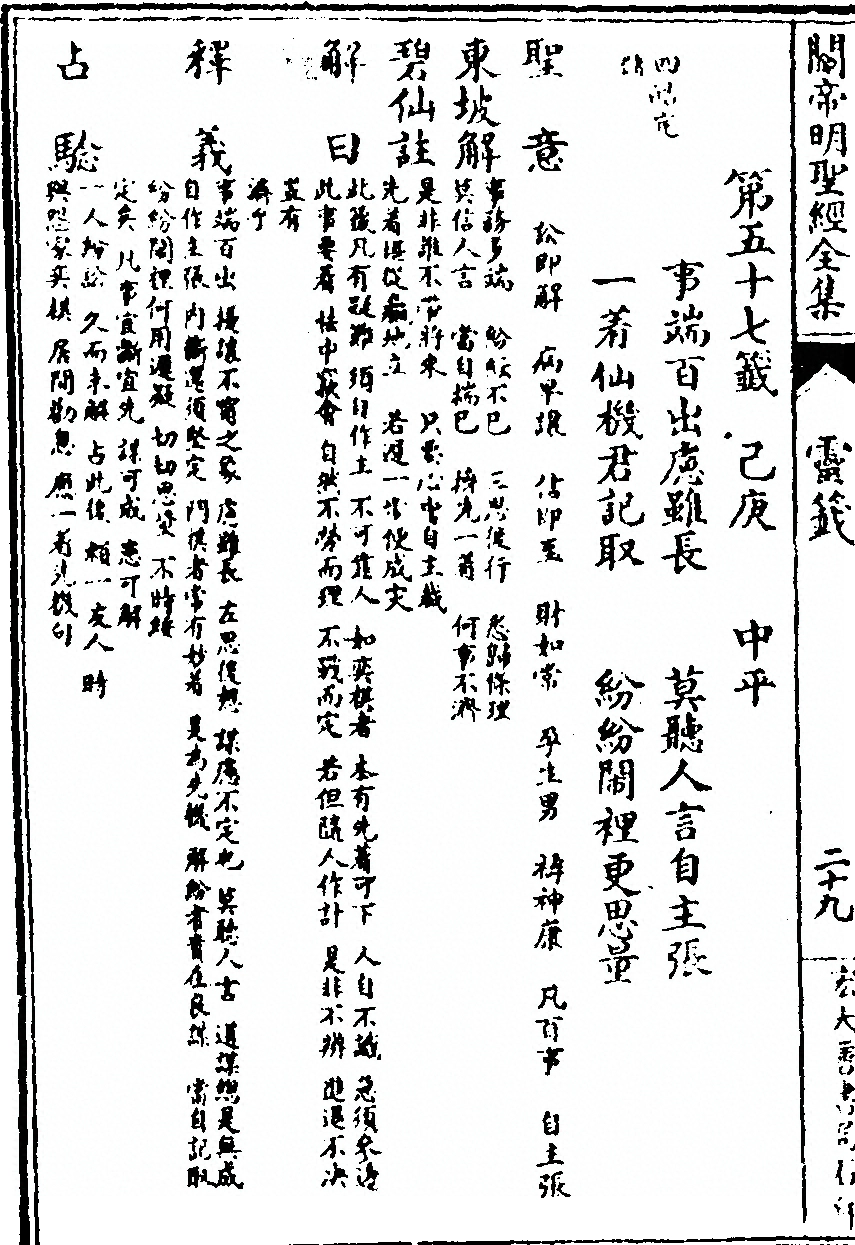 關帝明聖經全集
靈籤
二十九
宏大善書局
第五十七籤 己庚 中平
事端百出慮雖長 莫聽人言自主張
一著仙機君記取 紛紛鬧裡更思量
聖意
訟即解 病早禳 信即至 財如常 孕生男 禱神康 凡百事 自主張
東坡解
事務多端 紛紜不已 三思後行 悉歸條理
莫信人言 當自揣已 搶先一著 何事不濟
碧仙註
是非誰不帶將來 只要心中自主裁
先著須從癡地立 若遲一步便成灾
解曰
此後凡有疑難 須自作主 不可靠人 如奕棋者 本有先著可下 人自不識 急須參透
此事要看 怯中竅會 自然不勞而理 不戰而定 若但隨人作計 是非不辨 進退不決
豈有
濟乎
釋義
事端百出 擾攘不寧之象 慮雖長 左思後想 謀慮不定也 莫聽人言 道謀總是無成
自作主張 內斷還須堅定 鬥棋者常有妙著 是為先機 解紛者貴在良謀 當自記取
紛紛鬧裡 何用遲疑 切切思量 不時
定矣 凡事宜斷宜先 謀可成 患可解
占驗
一人紛訟 久而未解 占此後 賴一友人 時
與怨家奕棋 居間勸息 應一著先機句